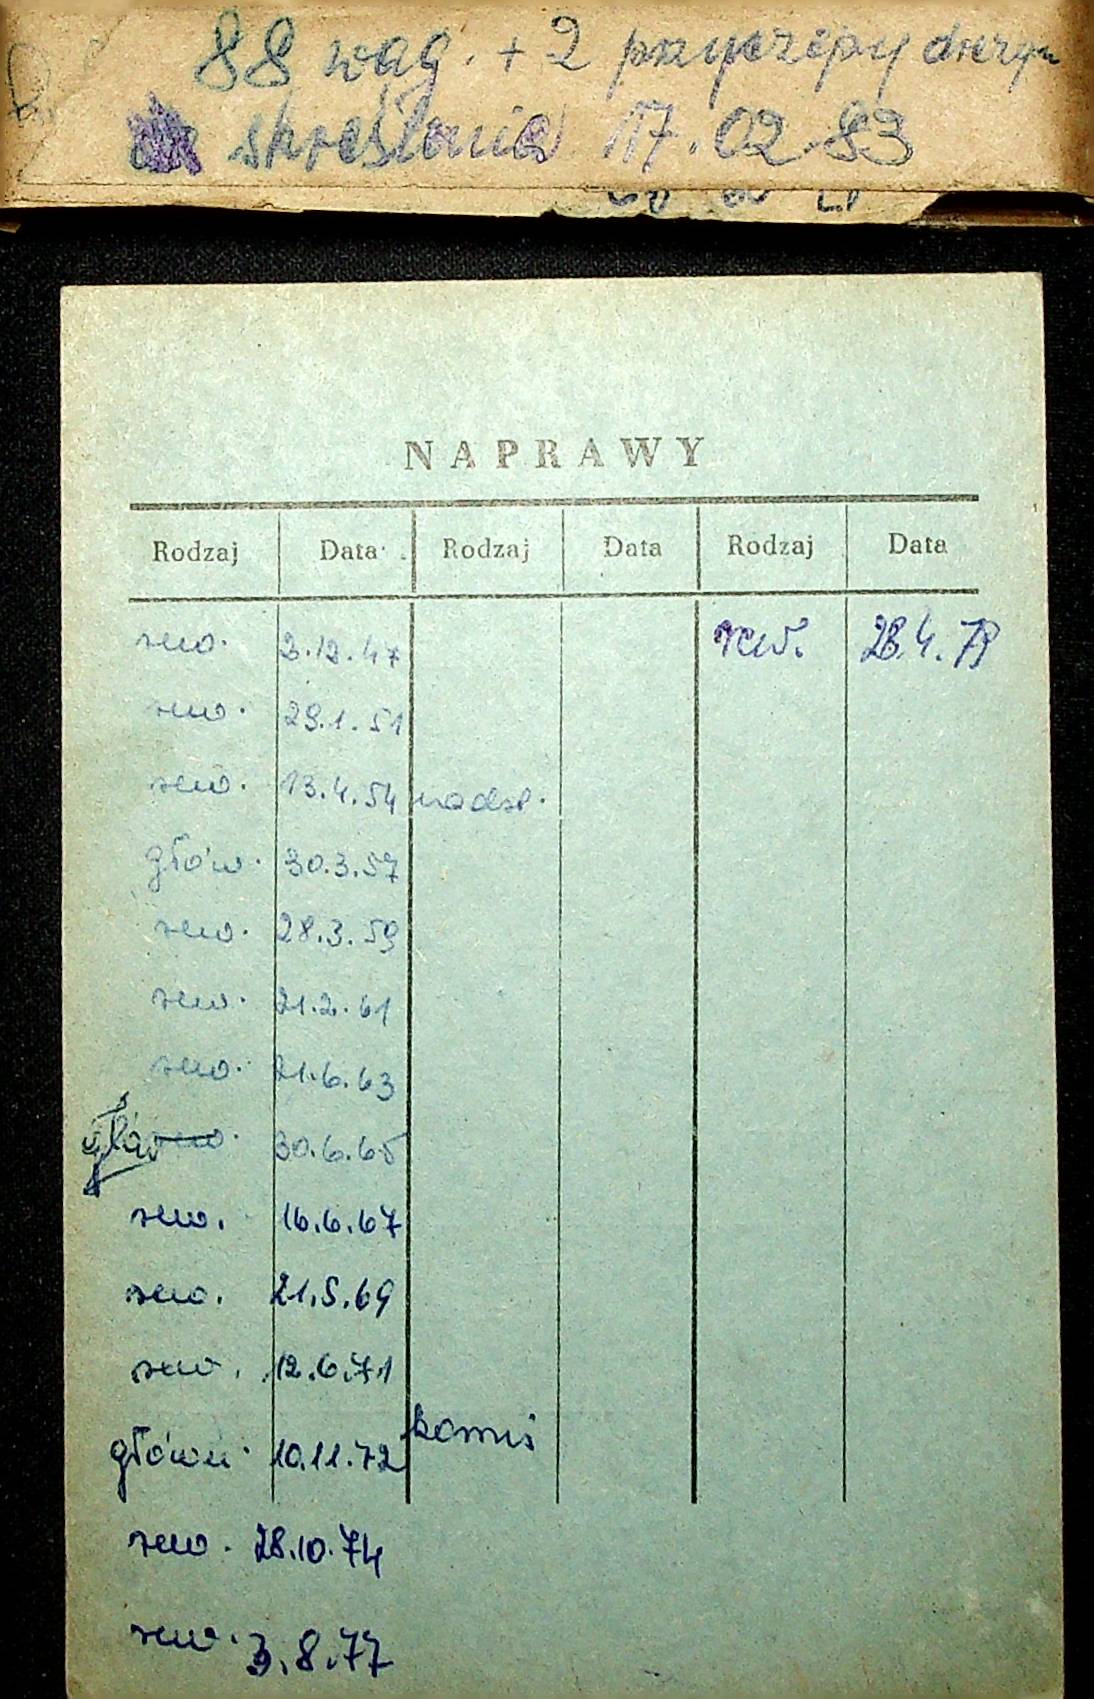 88 wag. + 2 przyczepy drezyn
skreślenia 17.02.83
NAPRAWY
Rodzaj Data Rodzaj Data Rodzaj Data
rew. 3.12.47 rew. 28.4.79
rew. 29.1.51
rew. 13.4.54 nadzł.
głów. 30.3.57
rew. 28.3.59
rew. 21.2.61
rew. 21.6.63
głów 30.6.65
rew. 16.6.67
rew. 21.5.69
rew. 12.6.71
główn. 10.11.72 komis
rew. 28.10.74
rew. 3.8.77